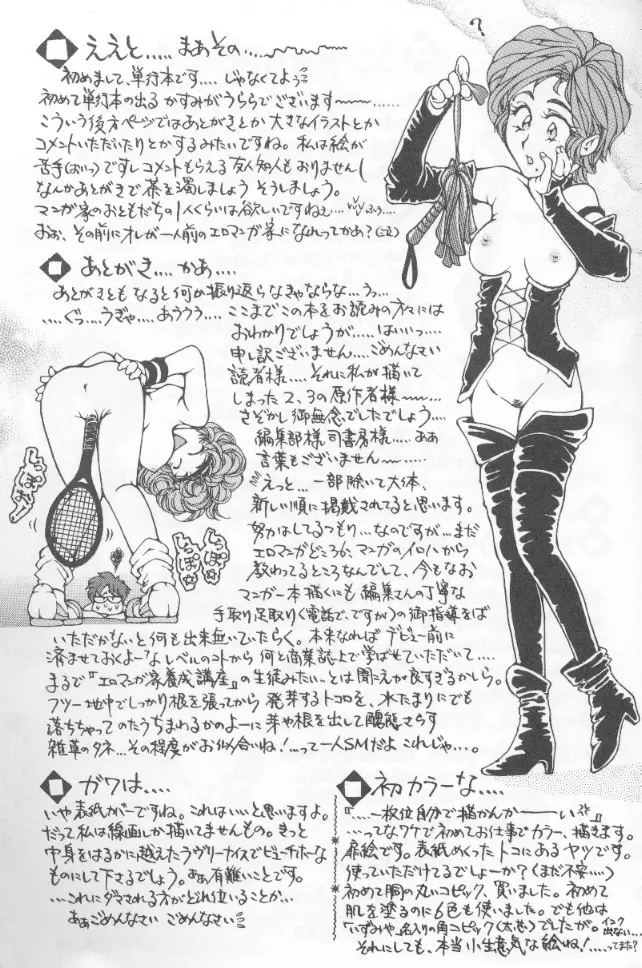 ええと..... まぁその.....
初めまして、単行本です.... じゃなくてよぅ
初めて単行本の出る かすみがうららでございます〜〜......
こういう後方ページではあとがきとか 大きなイラストとか
コメントいただいたり とかするみたいですね。私は絵が
苦手(おいっ)ですしコメントもらえる友人知人もおりませんし
なんかあとがきで茶を濁しましょう そうしましょう。
マンガ家のおともだちの1人くらいは欲しいですねぇ...
おぉ、その前にオレが一人前のエロマンガ家になれってかぁ?
あとがき.... かぁ....
あとがきとも なると何か振り返らなきゃならな...うっ...
....ぐっ....うぎゃ....あううう.... ここまでこの本をお読みの方々には
おわかりでしょうが.... はいいっ....
申し訳ございません.... ごめんなさい
読者様.... それに私が描いて
しまった 2、3の原作者様〜〜....
さぞかし御無念でしたでしょう....
編集部様、司書房様..... ああ
言葉もございません〜〜......
えっと... 一部除いて大体、
新しい順に掲載されてると思います。
努力はしてるつもり...なのですが...まだ
エロマンガどころか、マンガのイロハから
教わってるところなんでして、今もなお
マンガ一本描くにも 編集さんの丁寧な
手取り足取り(電話で、ですが)の御指導をば
いただかないと何も出来無いていたらく。本来なれば デビュー前に
済ませておくよーな レベルのコトから 何と商業誌上で学ばせていただいて.....
まるで『エロマンガ家養成講座』の生徒みたい...とは聞こえが良すぎるかしら。
フツー地中でしっかり根を張ってから 発芽するトコロを、水たまりにでも
落ちちゃって のたうちまわるかのよーに 芽や根を出して醜態さらす
雑草のタネ...その程度がお似合いね!...って一人SMだよ これじゃ...。
しっぱぁ
ガワは....
いや表紙カバーですね。これはいいと思いますよ。
だって私は線画しか描いてませんもの。きっと
中身をはるかに越えたラヴリーナイスでビューチホーな
ものにして下さるでしょう。あぁ有難いことです。
....これにダマされる方がどれ位いることか...
あぁごめんなさい ごめんなさい
初カラーな....
『....一枚位自分で描かんかーーい』
....ってなワケで初めてお仕事でカラー、描きます。
扉絵です。表紙めくったトコにあるヤツです。
使っていただけてるでしょーか?(まだ不安....)
初めて胴の丸いコピック、買いました。初めて
肌を塗るのに6色も使いました。でも他は
「いずみや」名入りの角コピック(太芯)でしたが。インク出ない...
それにしても、本当小生意気な絵ね!....ってまた?